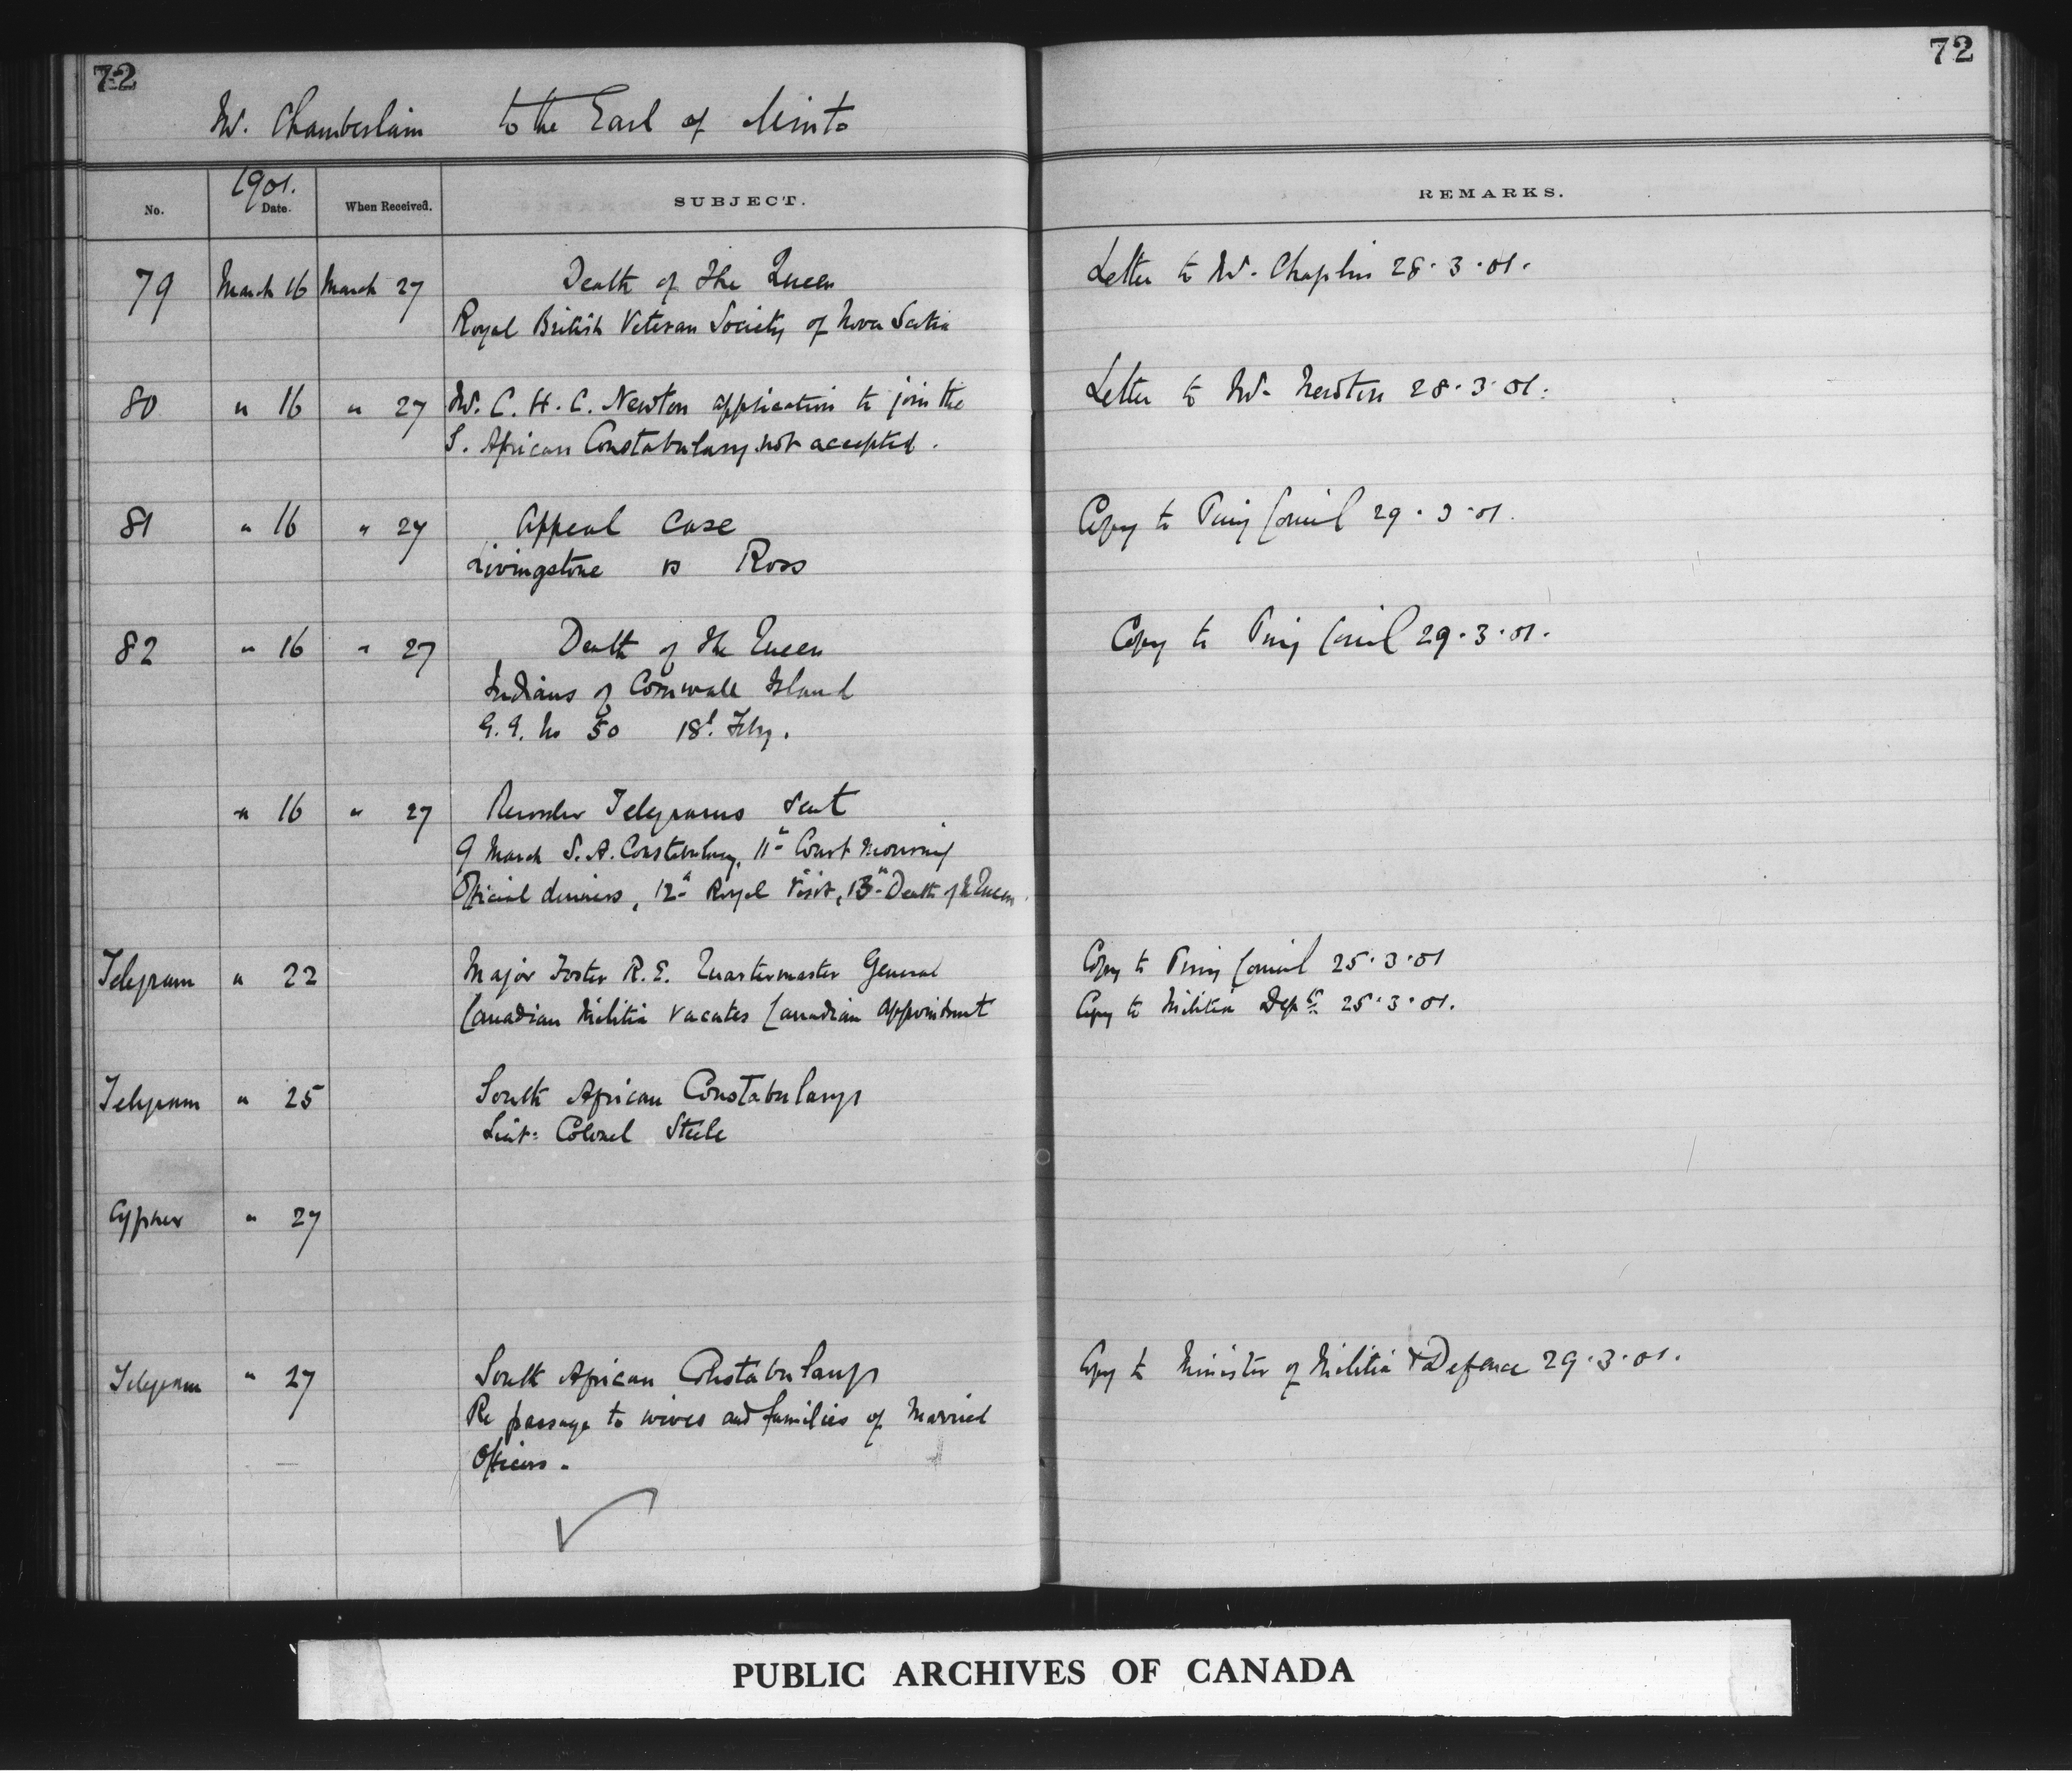 72
72
Mr. Chamberlain to the Earl of Minto
1901.
No. Date. When Received. SUBJECT. REMARKS.
79 March 16 March 27 Death of the Queen Letter to Mr. Chaplin 28.3.01.
Royal British Veteran Society of Nova Scotia
80 " 16 " 27 Mr. C. H. C. Newton application to join the Letter to Mr. Newton 28.3.01.
S. African Constabulary not accepted.
81 " 16 " 27 Appeal Case Copy to Privy Council 29.3.01.
Livingstone vs Ross
82 " 16 " 27 Death of the Queen Copy to Privy Council 29.3.01.
Indians of Cornwall Island
G.G. No 50 18th Feby.
" 16 " 27 Telegrams sent
9 March S.A. Constabulary, 11th Court mourning
Official dinners, 12th Royal Visit, 13th Death of the Queen.
Telegram " 22 Major Foster R.E. Quartermaster General Copy to Privy Council 25.3.01
Canadian Militia vacates Canadian Appointment Copy to Militia Dept 25.3.01.
Telegram " 25 South African Constabulary
Lieut: Colonel Steele
Cypher " 27
Telegram " 27 South African Constabulary Copy to Minister of Militia & Defence 29.3.01.
Re passage to wives and families of Married
Officers.
PUBLIC ARCHIVES OF CANADA